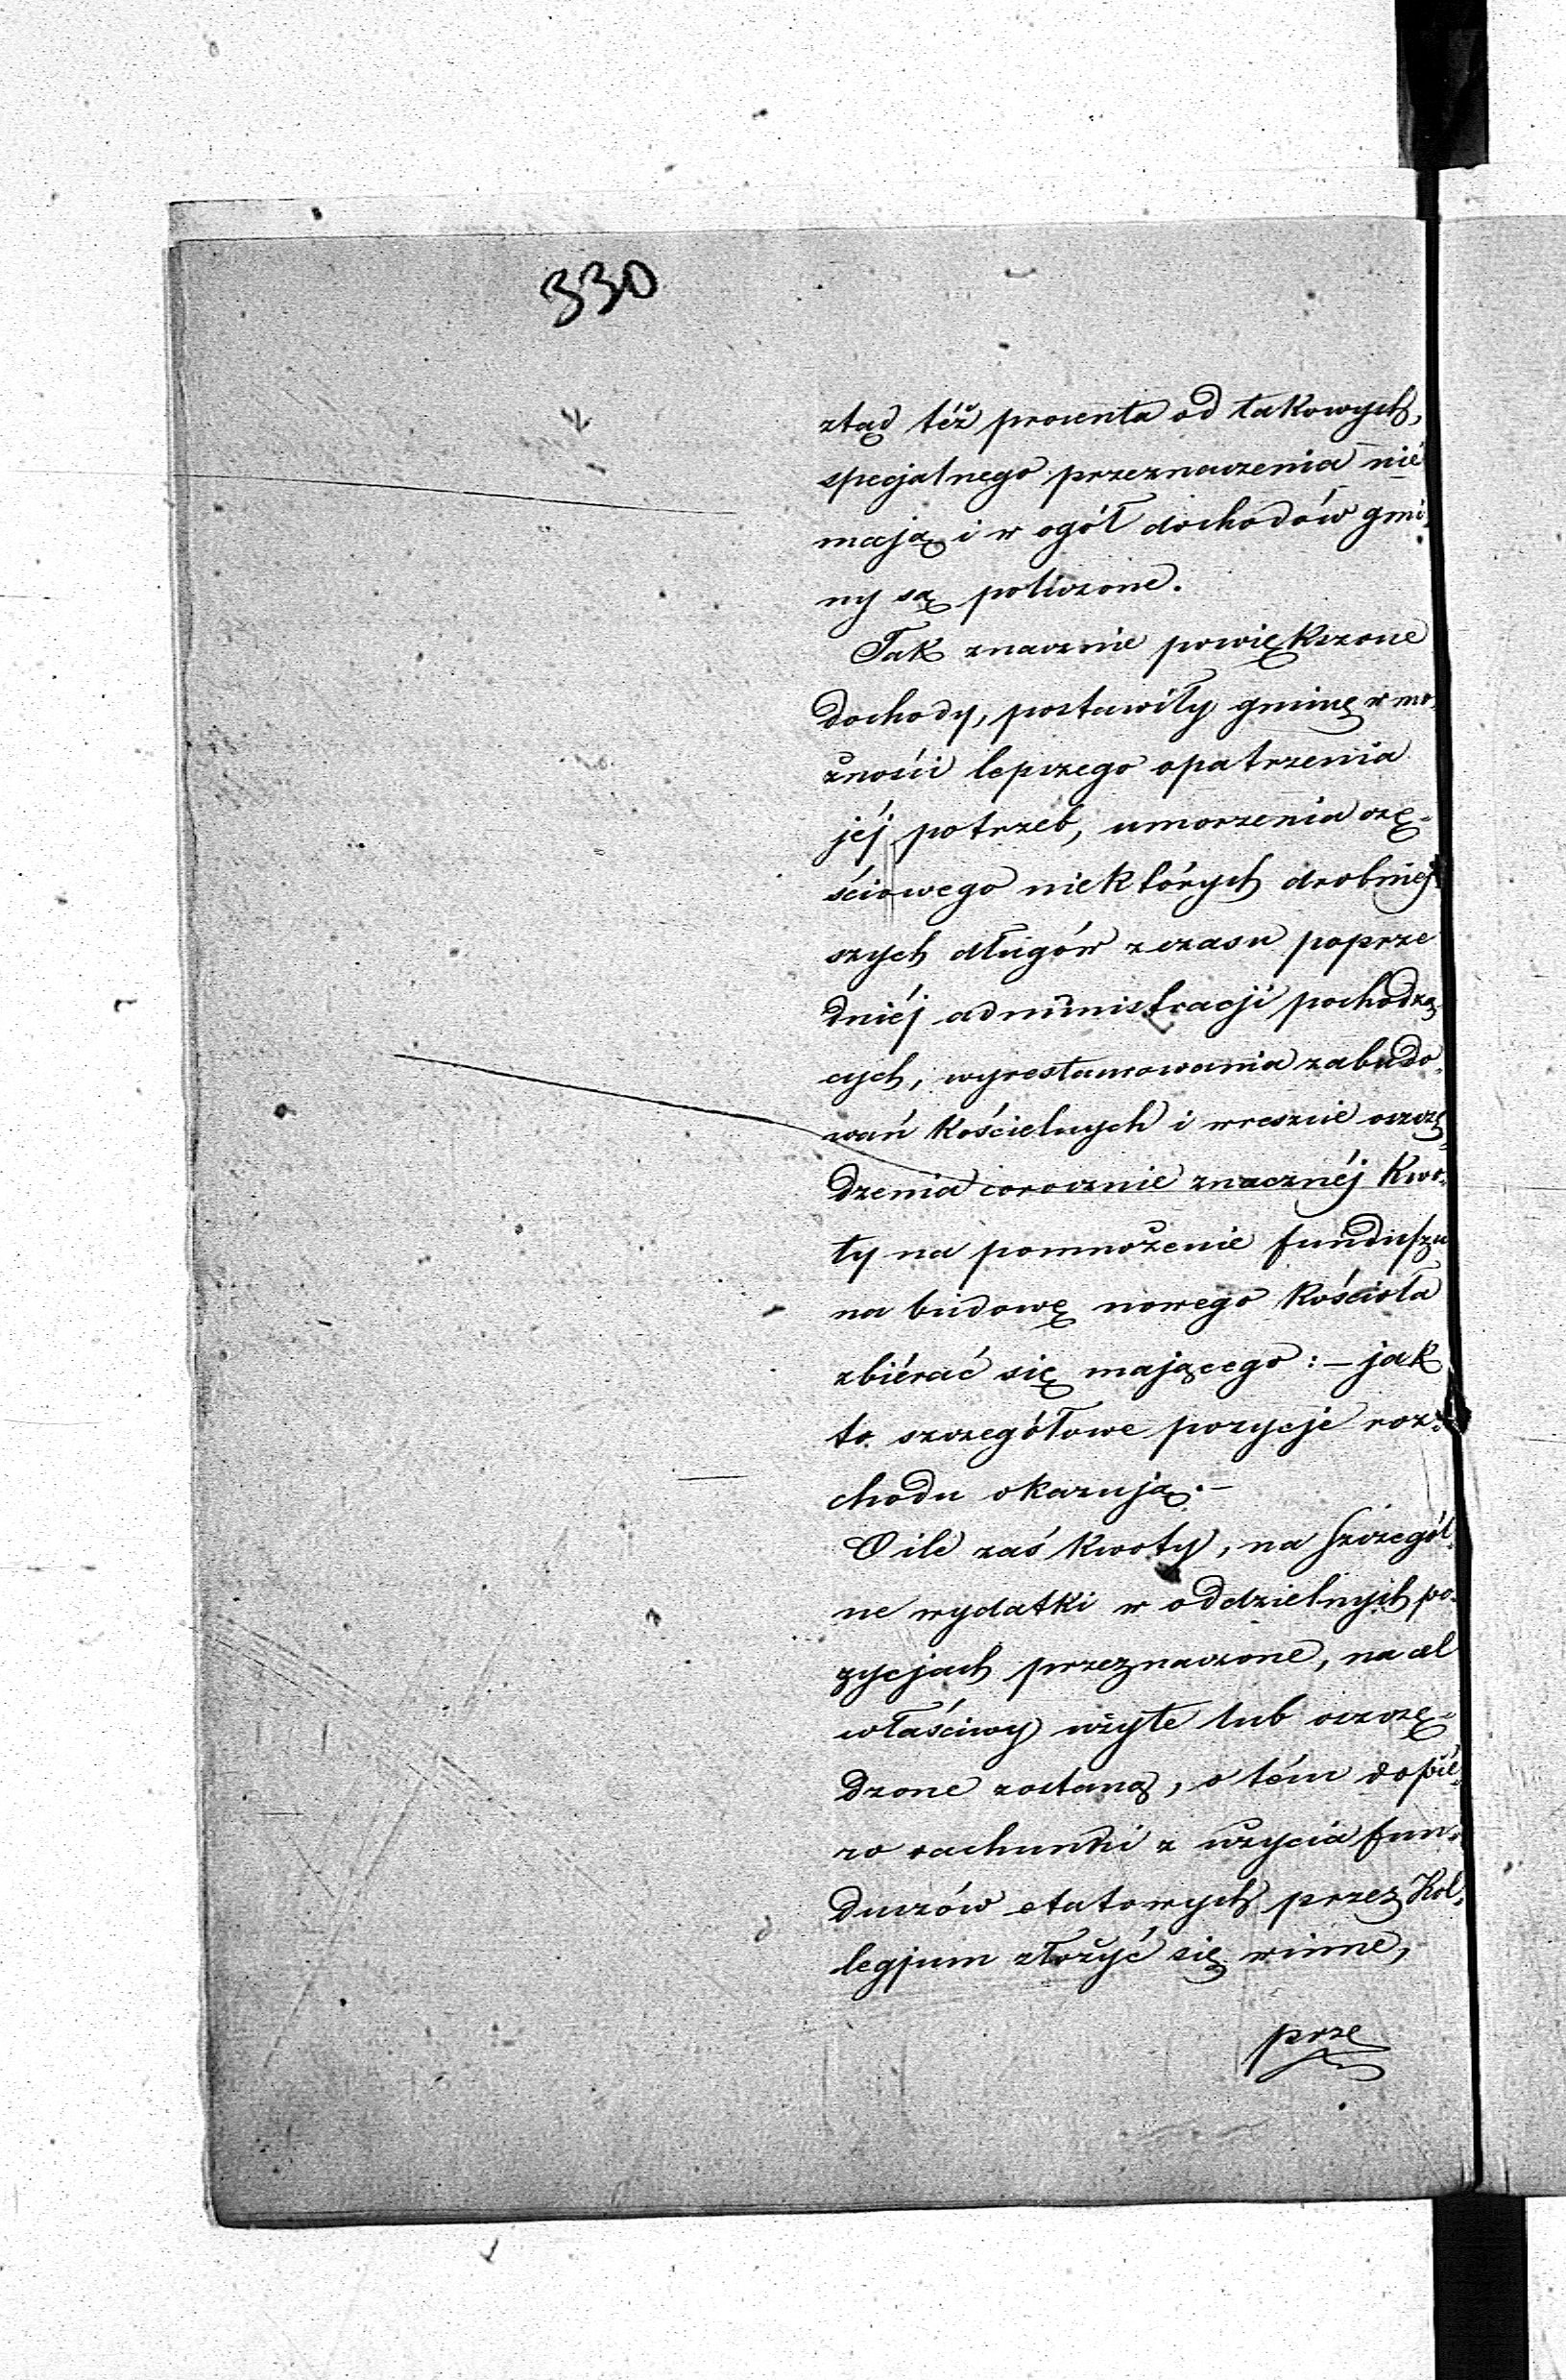 330
ztąd też procenta od takowych,
specjalnego przeznaczenia nie
mają i w ogół dochodów gmi-
ny są policzone.
Tak znacznie powiększone
dochody, postawiły gminę w mo-
żności lepszego opatrzenia
jéj potrzeb, umorzenia czę-
ściowego niektórych drobniej
szych długów z czasu poprze
dniéj administracji pochodzą
cych, wyrestaurowania zabudo-
wań kościelnych i wreszcie oszczę
dzenia corocznie znacznéj kwo-
ty na pomnożenie funduszu
na budowę nowego kościoła
zbiérać się mającego: – jak
to szczegółowe pozycje roz-
chodu okazują. –
O ile zaś kwoty, na szczegól-
ne wydatki w oddzielnych po-
zycjach przeznaczone, na cel
właściwy użyte lub oszczę-
dzone zostaną, o tém dopié-
ro rachunki z użycia fun-
duszów etatowych przez Kol-
legjum złożyć się winne,
prze